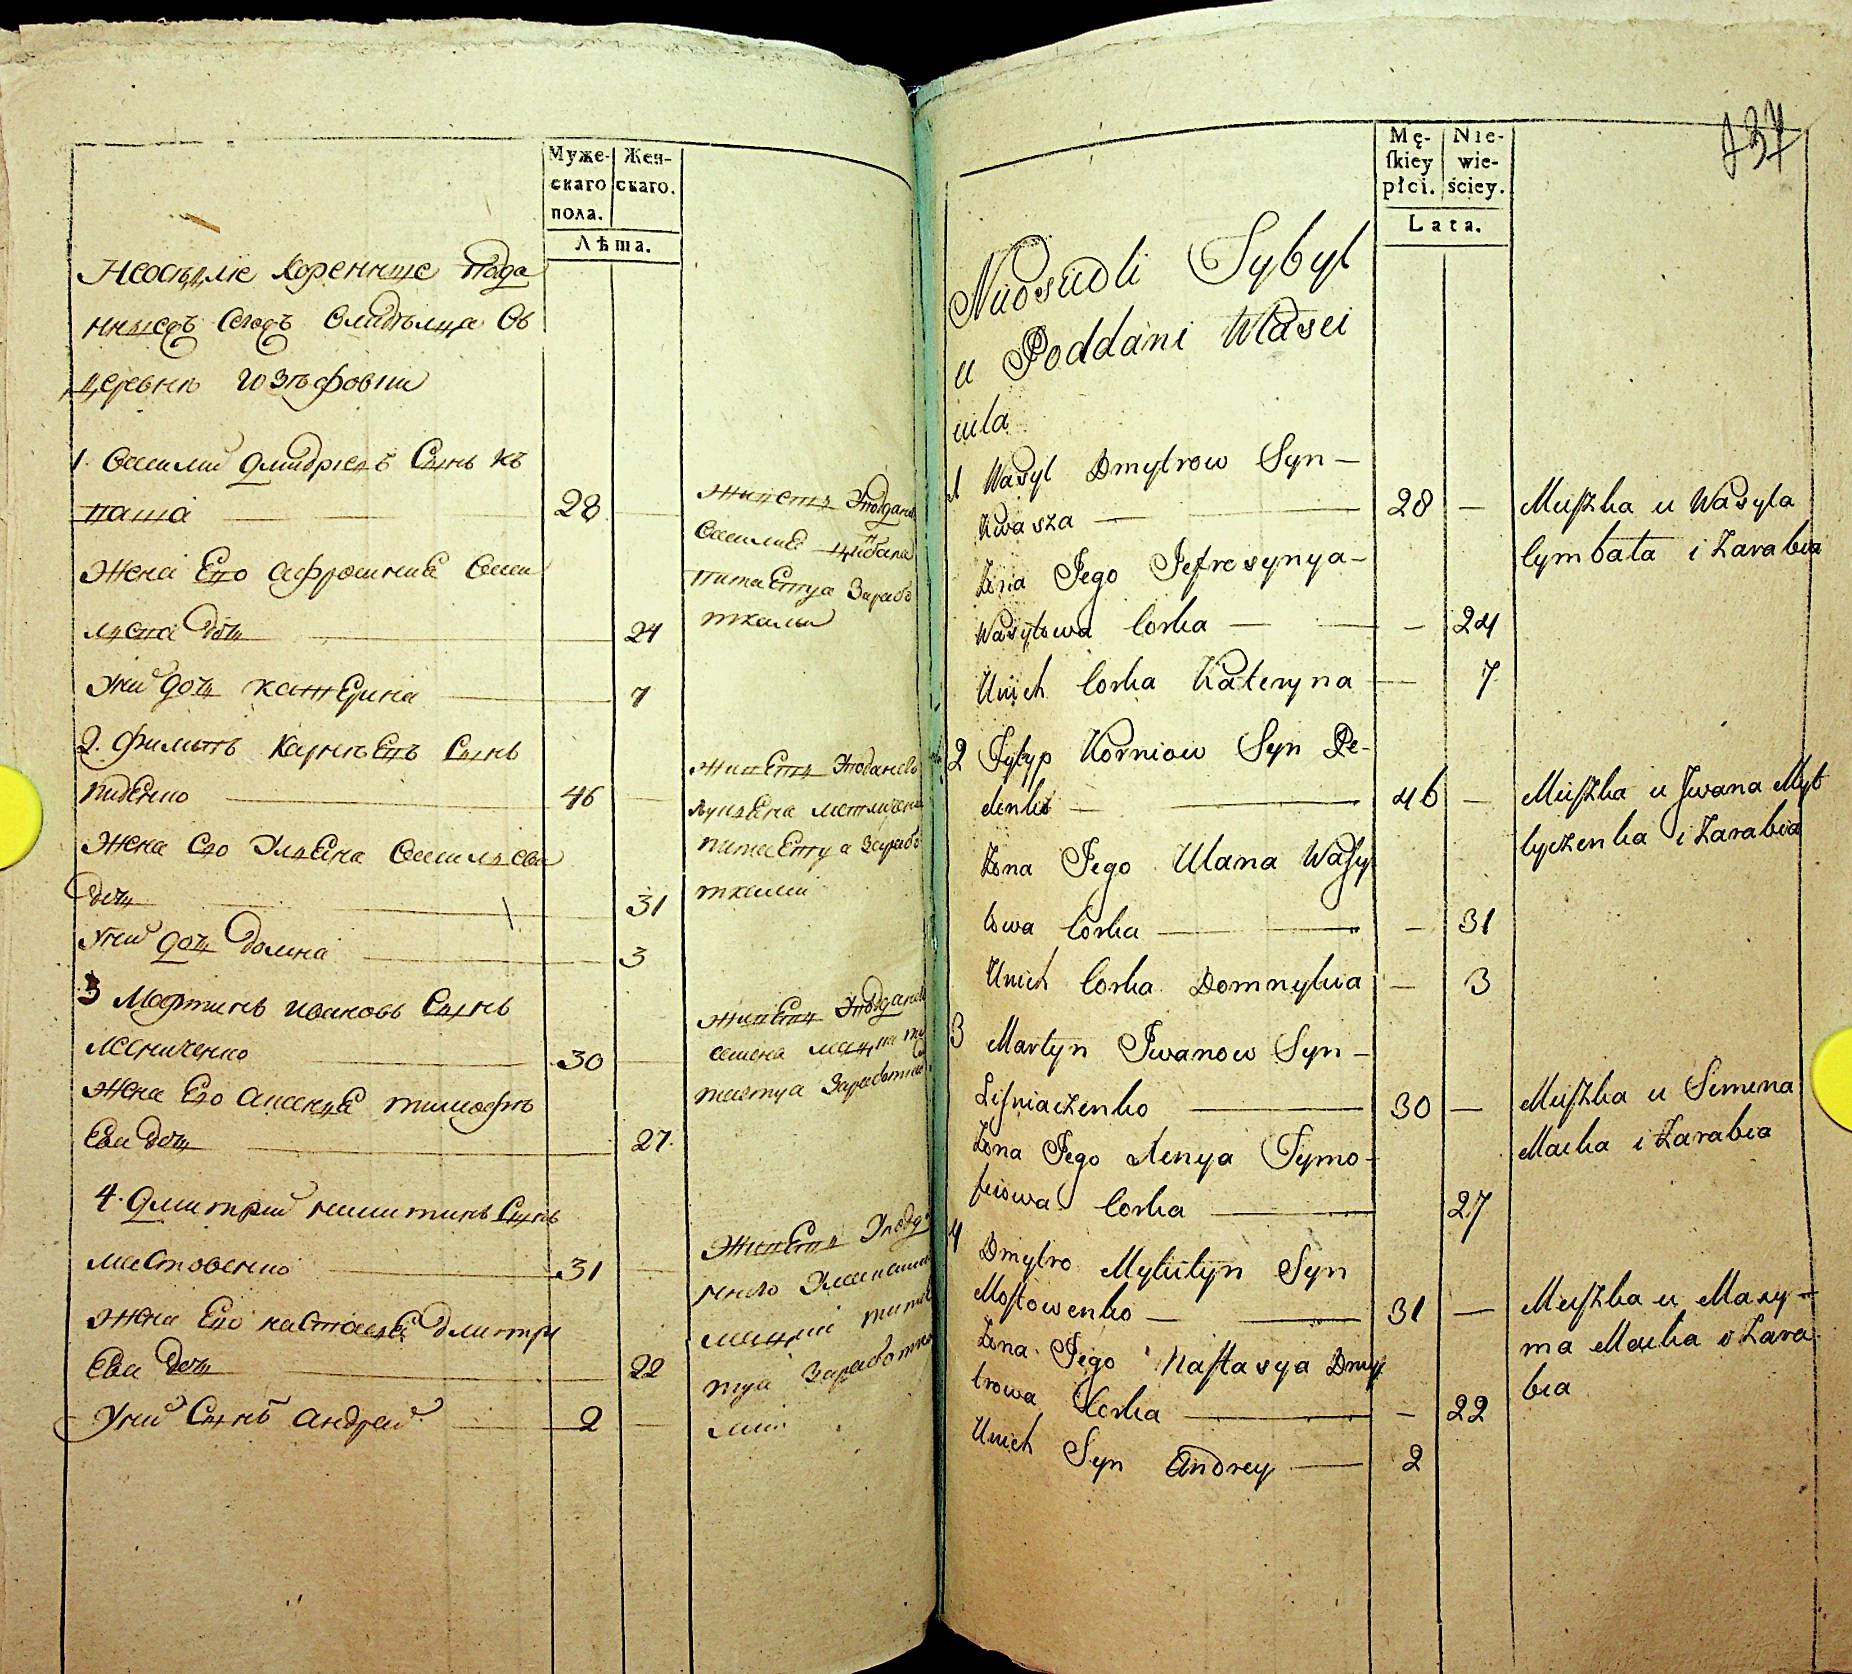 Муже-
скаго
пола.
Жен-
скаго.
Лѣта.
Неоселие Коренные Пода
нныхъ Сегожъ Владѣльца Въ
деревнѣ Юзѣфовки
1. Василий Дмидриевъ Сынъ К
ваша 28
Жена Его Афросиния Васи
лиева дочь 24
У них дочь катерина 7
2. Филипъ Карнѣевъ Сынъ
Педенко 46
Жена Его Улиена Василиева
дочь 31
У них дочь Домна 3
3 Мартинъ Ивановъ Сынъ
лесниченко 30
Жена Его Ксения тимофѣ
Ева дочь 27.
4. Дмитрий никитинъ Сынъ
мостовенко 31
Жена Его настасия Дмитри
Ева дочь 22
У них Сынъ Андрей 2
Живетъ Уподданого
Василия Цибала
питается Зарабо
тками
Живетъ Уподданого
питается Зарабо
тками
Живетъ Уподданого
Семена
Заработка
Живетъ Упод
Заработка
ми
137
Mę-
ſkiey
płci.
Nie-
wie-
ściey.
Lata.
Nuosiedli Sybyl
u Poddani Własci
ciela
1 Wasyl Dmytrow Syn –
Kwasza — 28 —
Żona Jego Jefrosynya –
Wasylowa Corka — – 24
Unich Corka Kateryna — 7
2 Fylyp Korniow Syn Pe-
denko — 46 —
Żona Jego Ulana Waſy
lowa Corka — – 31
Unich Corka Domnykia – 3
3 Martyn Jwanow Syn –
Liſniaczenko — 30 —
Żona Jego Xenya Tymo-
fiiowa Corka — 27
4 Dmytro Mykityn Syn
Moſtowenko — 31 —
Żona Jego Naſtasya Dmy
trowa Corka — – 22
Unich Syn Andrey — 2
Mieſzka u Wasyla
Cymbała i Zarabia
Mieſzka u Jwana Myt
lyczenka i Zarabia
Mieſzka u Semena
Macka i Zarabia
Mieſzka u Maxy-
ma Macka i Zara
bia